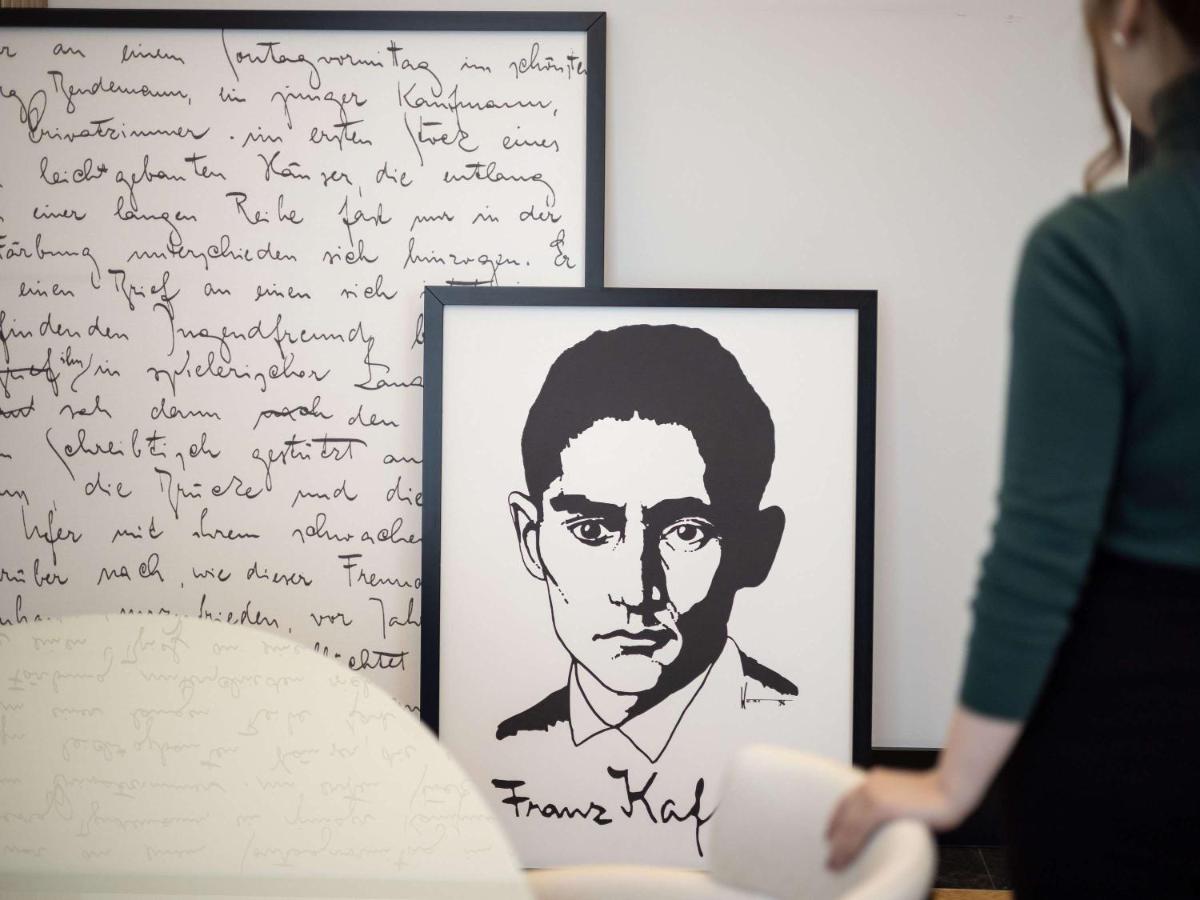 an einem Sontagvormittag im schönsten
g Bendemann, ein junger Kaufmann,
Privatzimmer im ersten Stock eines
leichtgebauten Häuser, die entlang
einer langen Reihe fast nur in der
Färbung unterschieden sich hinzogen. Er
einen Brief an einen sich
findenden Jugendfreund b
ihm in spielerischer Lang
sah dann nach den
Schreibtisch gestützt au
ng, die Brücke und die
Ufer mit ihrem schwachen
rüber nach, wie dieser Freund
frieden, vor Jah
üchtet
Franz Kaf